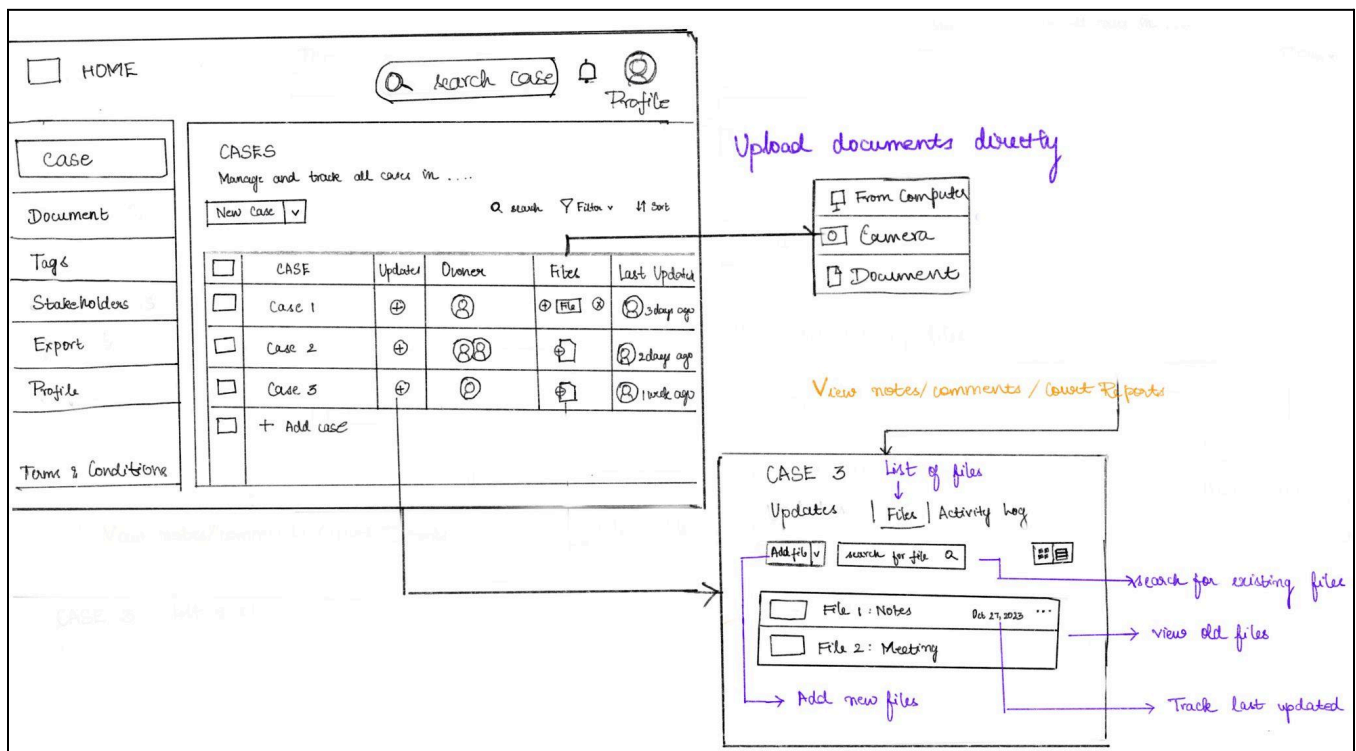 HOME
search case
Profile
Case
Document
Tags
Stakeholders
Export
Profile
Terms & Conditions
CASES
Manage and track all cases in ....
New Case
search Filter Sort
CASE Updates Owner Files Last Updated
Case 1 File 3 days ago
Case 2 2 days ago
Case 3 1 week ago
+ Add case
Upload documents directly
From Computer
Camera
Document
View notes/comments / Court Reports
CASE 3 List of files
Updates | Files | Activity Log
Add file search for file
search for existing files
File 1 : Notes Oct 27, 2023 ...
File 2 : Meeting
view old files
Add new files
Track last updated